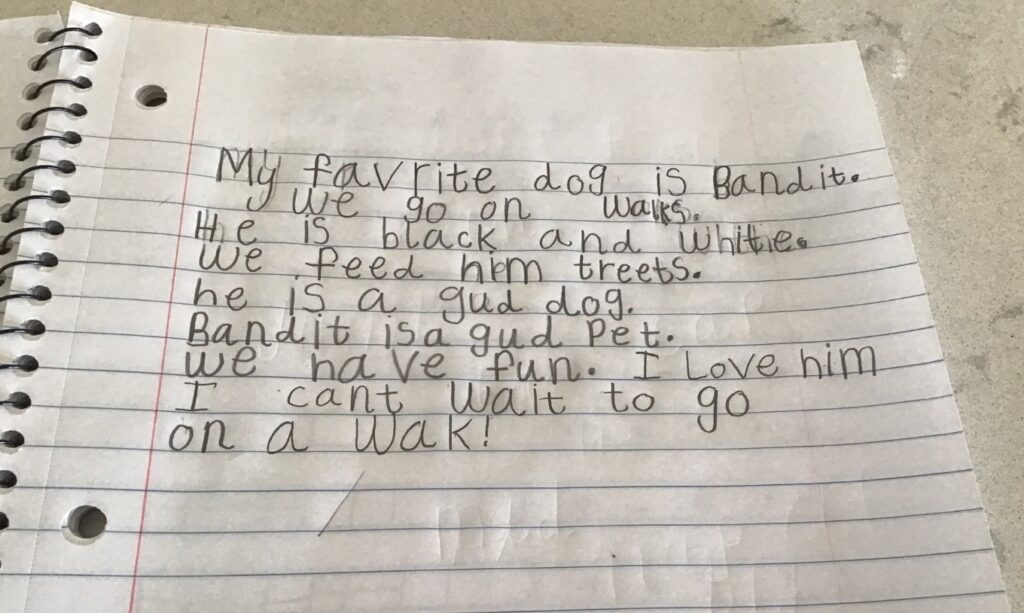 My favrite dog is Bandit.
We go on walks.
He is black and whithe.
We feed him treets.
he is a gud dog.
Bandit is a gud Pet.
We have fun. I Love him
I cant wait to go
on a wak!